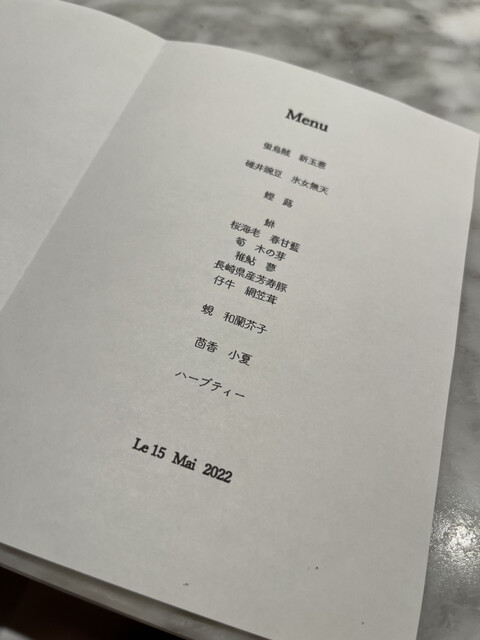 Menu
蛍烏賊　新玉葱
碓井豌豆　氷女無天
鰹　蕗
鮴
桜海老　春甘藍
筍　木の芽
稚鮎　蓼
長崎県産芳寿豚
仔牛　網笠茸
蜆　和蘭芥子
茴香　小夏
ハーブティー
Le 15 Mai 2022